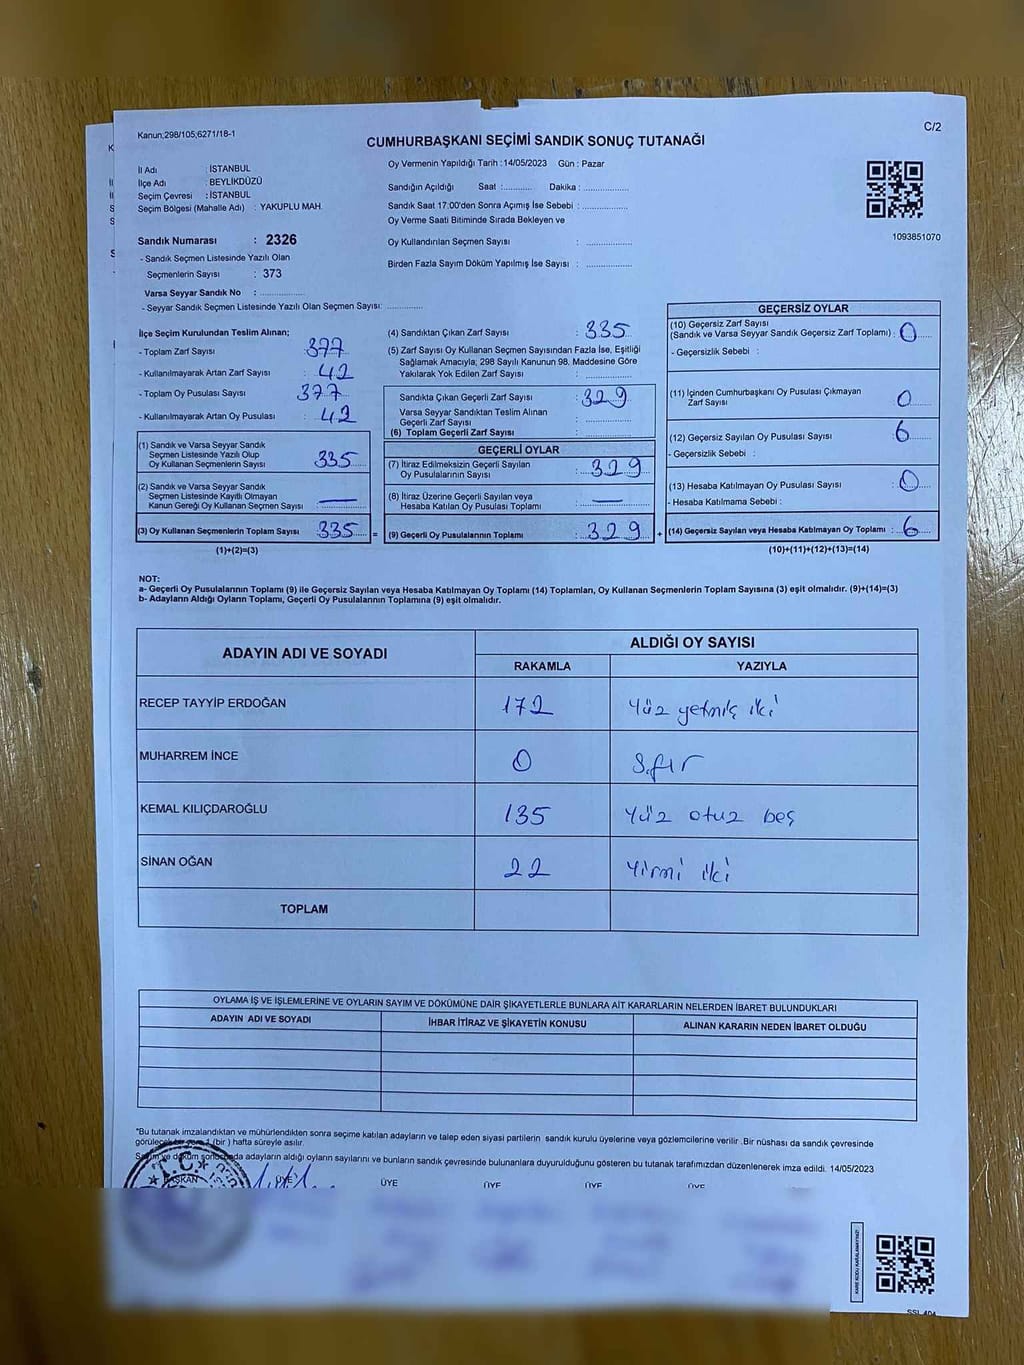 Kanun;298/105;6271/18-1
C/2
CUMHURBAŞKANI SEÇİMİ SANDIK SONUÇ TUTANAĞI
İl Adı : İSTANBUL
İlçe Adı : BEYLİKDÜZÜ
Seçim Çevresi : İSTANBUL
Seçim Bölgesi (Mahalle Adı) : YAKUPLU MAH.
Oy Vermenin Yapıldığı Tarih : 14/05/2023 Gün : Pazar
Sandığın Açıldığı Saat :........... Dakika : ....................
Sandık Saat 17:00'den Sonra Açımış İse Sebebi : ....................
Oy Verme Saati Bitiminde Sırada Bekleyen ve
Oy Kullandırılan Seçmen Sayısı : ....................
Birden Fazla Sayım Döküm Yapılmış İse Sayısı : ....................
1093851070
Sandık Numarası : 2326
- Sandık Seçmen Listesinde Yazılı Olan
Seçmenlerin Sayısı : 373
Varsa Seyyar Sandık No : ....................
- Seyyar Sandık Seçmen Listesinde Yazılı Olan Seçmen Sayısı: ...............
İlçe Seçim Kurulundan Teslim Alınan;
- Toplam Zarf Sayısı : 377
- Kullanılmayarak Artan Zarf Sayısı : 42
- Toplam Oy Pusulası Sayısı : 377
- Kullanılmayarak Artan Oy Pusulası : 42
(1) Sandık ve Varsa Seyyar Sandık
Seçmen Listesinde Yazılı Olup
Oy Kullanan Seçmenlerin Sayısı 335
(2) Sandık ve Varsa Seyyar Sandık
Seçmen Listesinde Kayıtlı Olmayan
Kanun Gereği Oy Kullanan Seçmen Sayısı —
(3) Oy Kullanan Seçmenlerin Toplam Sayısı 335 =
(1)+(2)=(3)
(4) Sandıktan Çıkan Zarf Sayısı : 335
(5) Zarf Sayısı Oy Kullanan Seçmen Sayısından Fazla İse, Eşitliği
Sağlamak Amacıyla; 298 Sayılı Kanunun 98. Maddesine Göre
Yakılarak Yok Edilen Zarf Sayısı : ....................
Sandıkta Çıkan Geçerli Zarf Sayısı : 329
Varsa Seyyar Sandıktan Teslim Alınan
Geçerli Zarf Sayısı : ....................
(6) Toplam Geçerli Zarf Sayısı : ....................
GEÇERLİ OYLAR
(7) İtiraz Edilmeksizin Geçerli Sayılan
Oy Pusulalarının Sayısı : 329
(8) İtiraz Üzerine Geçerli Sayılan veya
Hesaba Katılan Oy Pusulası Toplamı : —
(9) Geçerli Oy Pusulalarının Toplamı : 329 +
GEÇERSİZ OYLAR
(10) Geçersiz Zarf Sayısı
(Sandık ve Varsa Seyyar Sandık Geçersiz Zarf Toplamı) : 0
- Geçersizlik Sebebi :
(11) İçinden Cumhurbaşkanı Oy Pusulası Çıkmayan
Zarf Sayısı : 0
(12) Geçersiz Sayılan Oy Pusulası Sayısı : 6
- Geçersizlik Sebebi :
(13) Hesaba Katılmayan Oy Pusulası Sayısı : 0
- Hesaba Katılmama Sebebi :
(14) Geçersiz Sayılan veya Hesaba Katılmayan Oy Toplamı : 6
(10)+(11)+(12)+(13)=(14)
NOT:
a- Geçerli Oy Pusulalarının Toplamı (9) ile Geçersiz Sayılan veya Hesaba Katılmayan Oy Toplamı (14) Toplamları, Oy Kullanan Seçmenlerin Toplam Sayısına (3) eşit olmalıdır. (9)+(14)=(3)
b- Adayların Aldığı Oyların Toplamı, Geçerli Oy Pusulalarının Toplamına (9) eşit olmalıdır.
ADAYIN ADI VE SOYADI
ALDIĞI OY SAYISI
RAKAMLA YAZIYLA
RECEP TAYYİP ERDOĞAN 172 Yüz yetmiş iki
MUHARREM İNCE 0 Sıfır
KEMAL KILIÇDAROĞLU 135 Yüz otuz beş
SİNAN OĞAN 22 Yirmi iki
TOPLAM
OYLAMA İŞ VE İŞLEMLERİNE VE OYLARIN SAYIM VE DÖKÜMÜNE DAİR ŞİKAYETLERLE BUNLARA AİT KARARLARIN NELERDEN İBARET BULUNDUKLARI
ADAYIN ADI VE SOYADI İHBAR İTİRAZ VE ŞİKAYETİN KONUSU ALINAN KARARIN NEDEN İBARET OLDUĞU
*Bu tutanak imzalandıktan ve mühürlendikten sonra seçime katılan adayların ve talep eden siyasi partilerin sandık kurulu üyelerine veya gözlemcilerine verilir .Bir nüshası da sandık çevresinde
görülecek bir yere 1 (bir ) hafta süreyle asılır.
Sayım ve döküm sonucunda adayların aldığı oyların sayılarını ve bunların sandık çevresinde bulunanlara duyurulduğunu gösteren bu tutanak tarafımızdan düzenlenerek imza edildi. 14/05/2023
T.C.
BAŞKAN ÜYE ÜYE ÜYE ÜYE ÜYE